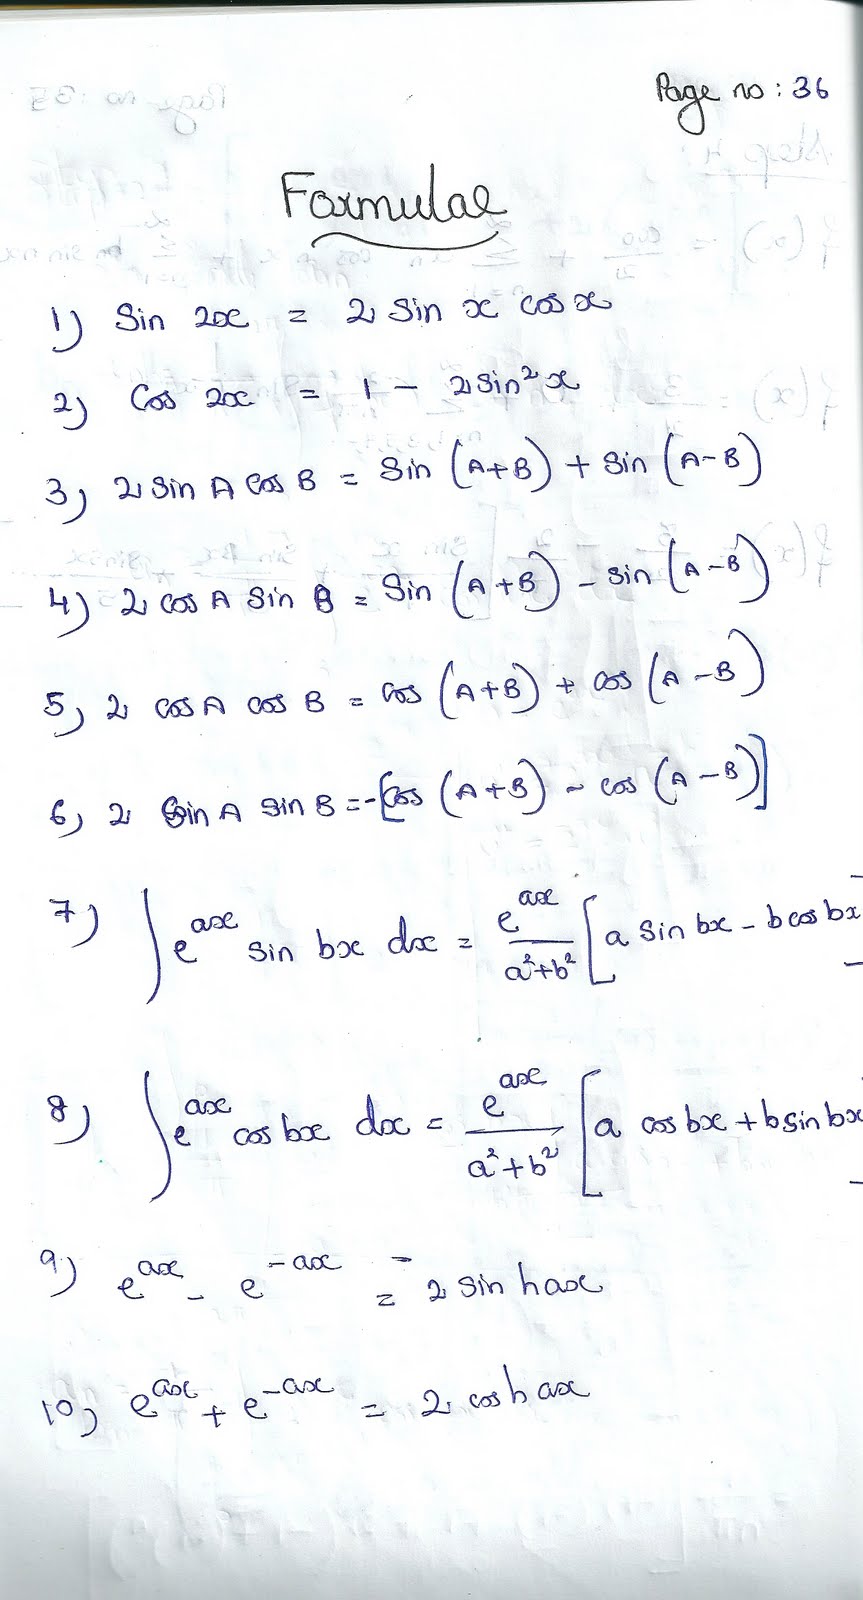 Page no : 36
Formulae
1) Sin 2x = 2 sin x cos x
2) Cos 2x = 1 - 2sin²x
3) 2 sin A cos B = Sin (A+B) + sin (A-B)
4) 2 cos A sin B = Sin (A+B) - sin (A-B)
5) 2 cos A cos B = cos (A+B) + cos (A-B)
6) 2 Sin A sin B = -[cos (A+B) - cos (A-B)]
7) ∫ e^ax sin bx dx = e^ax / a²+b² [a sin bx - b cos bx
8) ∫ e^ax cos bx dx = e^ax / a²+b² [a cos bx + b sin bx
9) e^ax - e^-ax = 2 sin hax
10) e^ax + e^-ax = 2 cosh ax